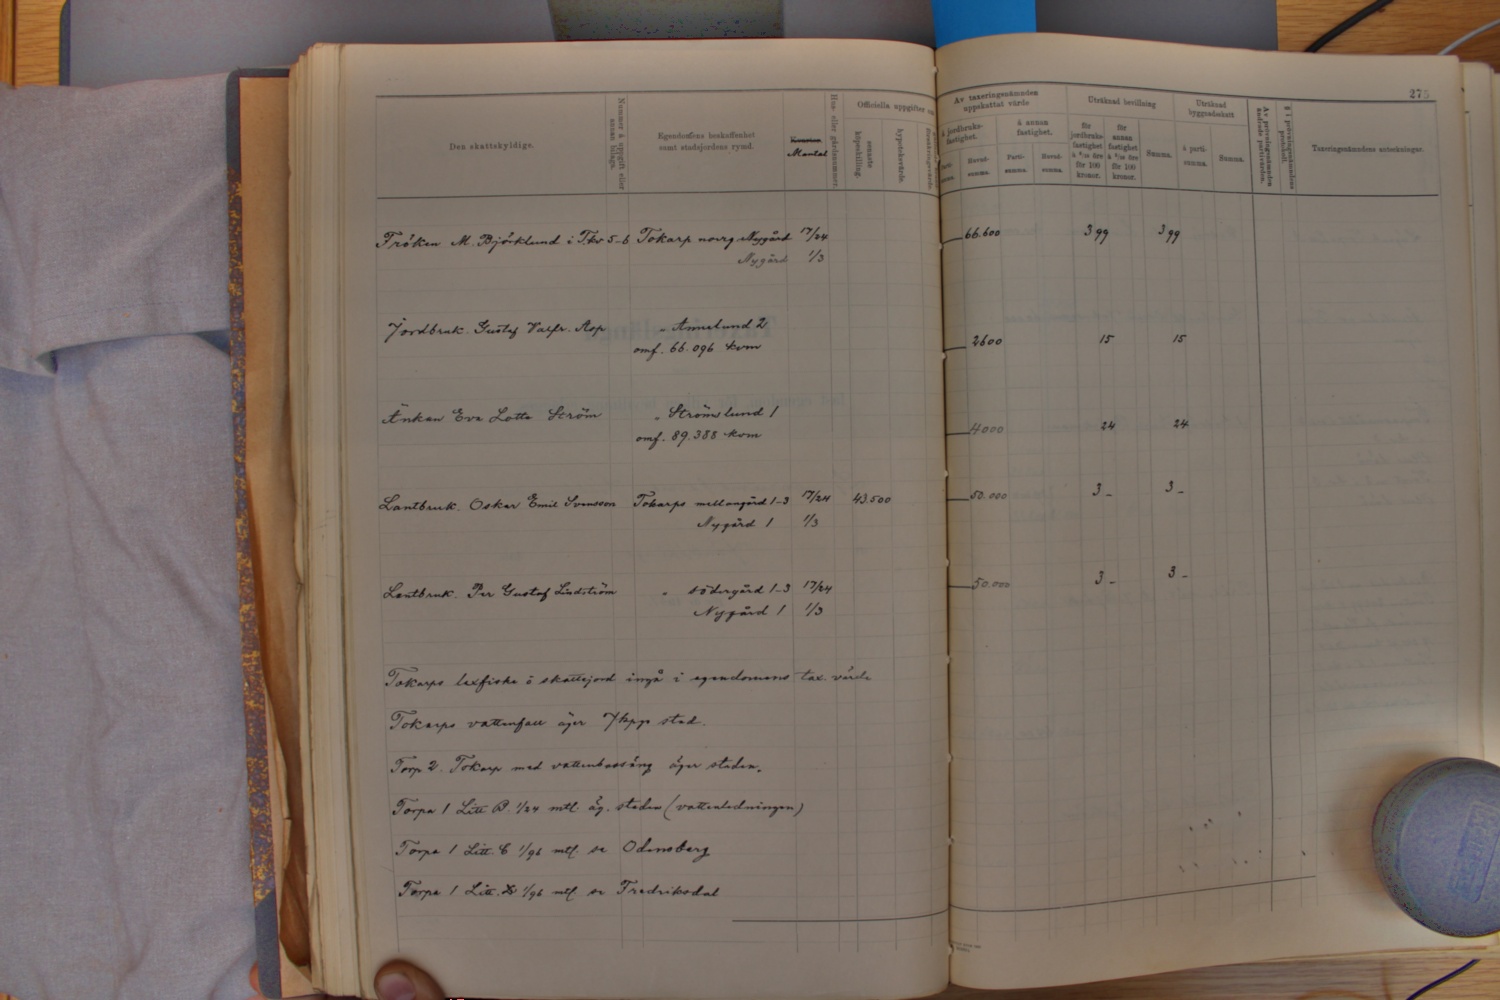 275
Den skattskyldige.
Nummer å uppgift eller annan bilaga.
Egendomens beskaffenhet
samt stadsjordens rymd.
Mantal
Hus- eller gårdsnummer.
Officiella uppgifter om
senaste köpeskilling.
hypoteksvärde.
Av taxeringsnämnden
uppskattat värde
å jordbruks-
fastighet.
å annan
fastighet.
Parti-
summa.
Huvud-
summa.
Parti-
summa.
Huvud-
summa.
Uträknad bevillning
för
jordbruks-
fastighet
för 100
kronor.
för
annan
fastighet
för 100
kronor.
Summa.
Uträknad
byggnadsskatt
å parti-
summa.
Summa.
Av prövningsnämnden
ändrade partivärden.
§ i prövningsnämndens
protokoll.
Taxeringsnämndens anteckningar.
Fröken M. Björklund i Tkv 5-6 Tokarp norrg Nygård 17/24 66.600 3 99 3 99
Nygård 1/3
Jordbruk. Gustaf Valfr. Asp " Annelund 2
omf. 66.096 kvm 2600 15 15
Änkan Eva Lotta Ström " Strömslund 1
omf. 89.388 kvm 4000 24 24
Lantbruk. Oskar Emil Svensson Tokarps mellangård 1-3 17/24 43.500 50.000 3 - 3 -
Nygård 1 1/3
Lantbruk. Per Gustaf Lindström " södergård 1-3 17/24 50.000 3 - 3 -
Nygård 1 1/3
Tokarps laxfiske å skattejord ingå i egendomens tax. värde
Tokarps vattenfall äger Jkpgs stad.
Torp 2. Tokarp med vattenbassäng äger staden.
Torpa 1 Litt B 1/24 mtl. äg. staden (vattenledningen)
Torpa 1 Litt. C 1/96 mtl. se Odensberg
Torpa 1 Litt. 1/96 mtl. se Fredriksdal